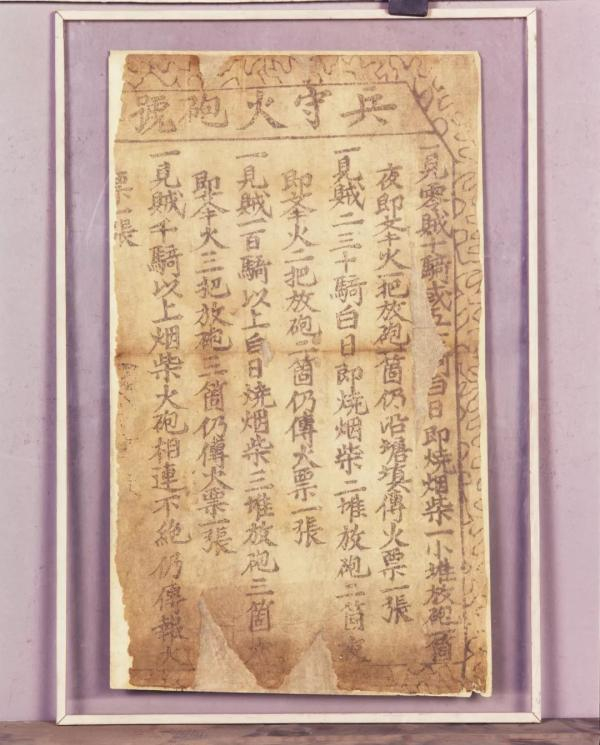 兵守火砲號
一見零賊十騎或五騎白日即燒烟柴一小堆放砲一箇
夜即举火一把放砲一箇仍沿塘墩傳火票一張
一見賊二三十騎白日即燒烟柴二堆放砲二箇夜
即举火二把放砲二箇仍傳火票一張
一見賊一百騎以上白日燒烟柴三堆放砲三箇夜
即举火三把放砲三箇仍傳火票一張
一見賊千騎以上烟柴火砲相連不絶仍傳報火
票一張